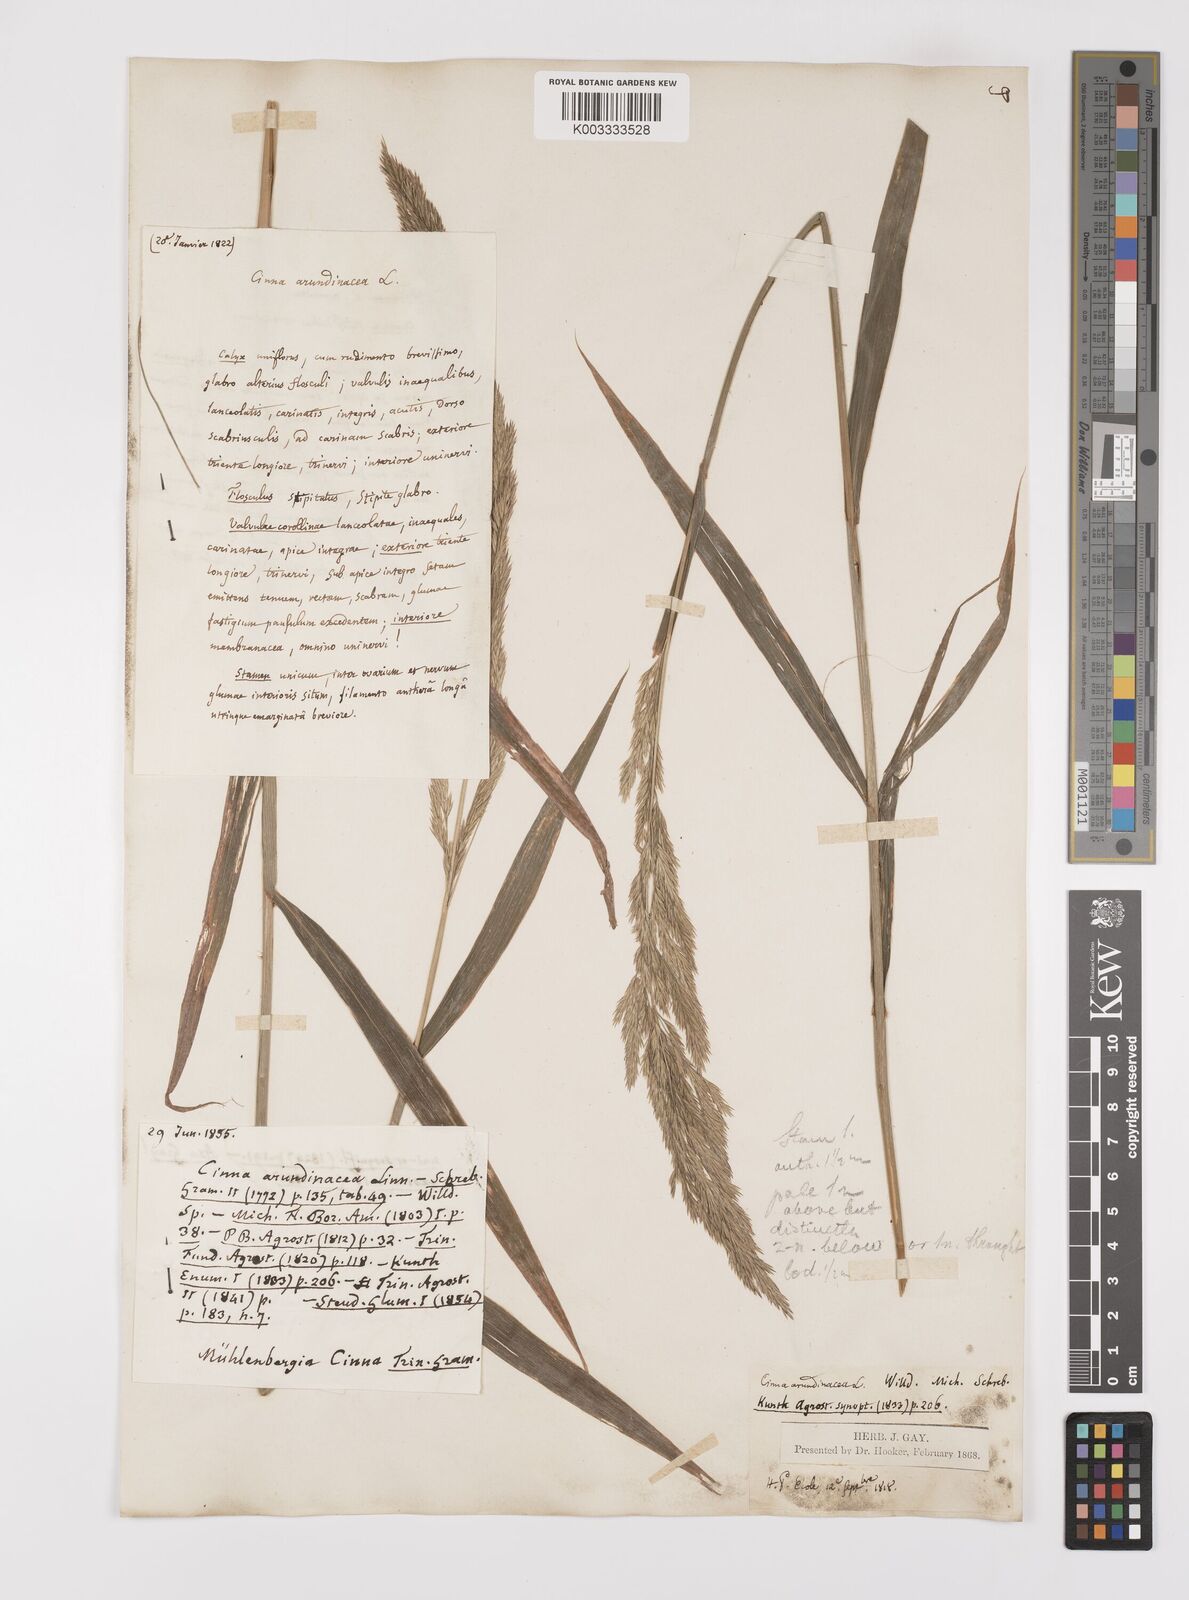 ROYAL BOTANIC GARDENS KEW
K003333528
(28. Janvier 1822)
Cinna arundinacea L.
Calyx uniflorus, cum rudimento brevissimo,
glabro alterius flosculi; valvulis inaequalibus,
lanceolatis, carinatis, integris, acutis, dorso
scabriusculis, ad carinam scabris; exteriore
triente longiore, trinervi; interiore uninervi.
Flosculus stipitatus, stipite glabro.
Valvulae corollinae lanceolatae, inaequales,
carinatae, apice integrae; exteriore triente
longiore, trinervi, sub apice integro setam
emittens tenuem, rectam, scabram, glumae
fastigium paululum excedentem; interiore
membranacea, omnino uninervi!
Stamen unicum, inter ovarium et nervum
glumae interioris situm, filamento antherâ longâ
utrinque emarginatâ breviore.
29 Jun. 1855.
Cinna arundinacea Linn. — Schreb.
Gram. II (1772) p. 135, tab. 49. — Willd.
Sp. — Mich. Fl. Bor. Am. (1803) I. p.
38. — P.B. Agrost. (1812) p. 32. — Trin.
Fund. Agrost. (1820) p. 118. — Kunth
Enum. I (1833) p. 206. — Trin. Agrost.
II (1841) p. — Steud. Glum. I (1854)
p. 183, n. 7.
Mühlenbergia Cinna Trin. Gram.
Stam 1.
anth. 1 1/2 m
pale 1 n
above but
distinctly
2-n. below or 1n. throught
Lod. 1/2 m
Cinna arundinacea L. Willd. Mich. Schreb.
Kunth Agrost. synopt. (1833) p. 206.
HERB. J. GAY.
Presented by Dr. Hooker, February 1868.
H. P. Ecole, 12 Septbre 1818.
inches
centimeters
Density
Don Williams
M001121
Royal Botanic Gardens
Kew
copyright reserved
0 1 2 3 4 5 6 7 8 9 10
cm